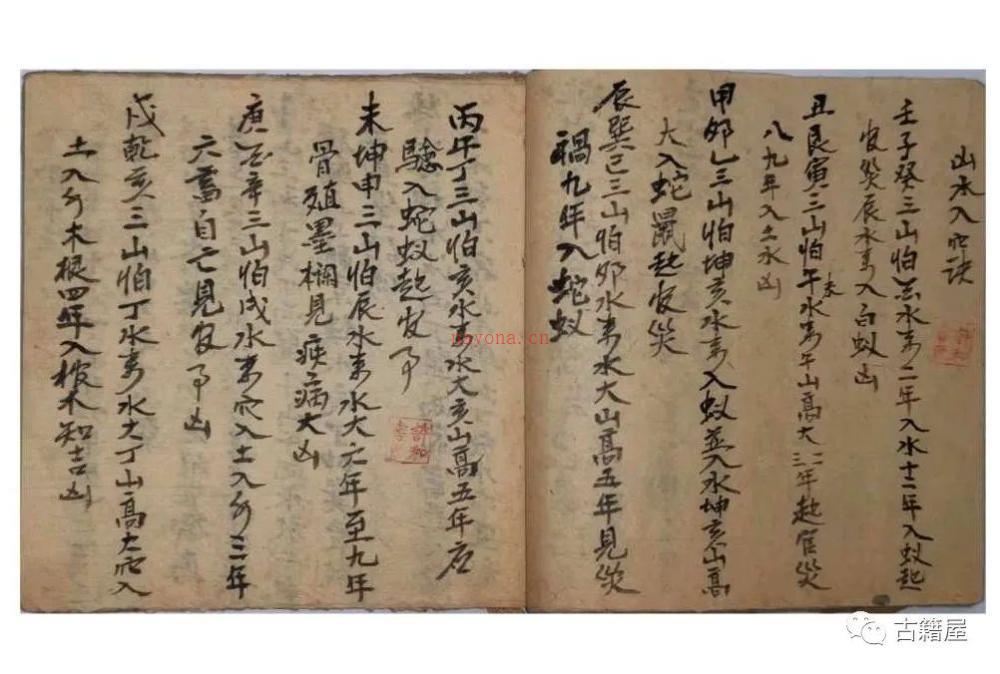 山水入穴诀
壬子癸三山怕 水来二年入水十二年入蚁起
官災辰水来入白蚁凶
丑艮寅三山怕午未水来午山高大 年起官災
八九年入土水凶
甲卯乙三山怕坤亥水来入蚁並入水坤亥山高
大入蛇鼠起官災
辰巽巳三山怕卯水来水大山高五年見災
禍九年入蛇蚁
丙午丁三山怕亥水来水大亥山高五年应
驗入蛇蚁起官事
未坤申三山怕辰水来水大 年至九年
骨殖墨 見疾病大凶
庚 辛三山怕戌水来穴入土入 三年
六畜自亡見官事凶
戌乾亥三山怕丁水来水大丁山高大穴入
土入 木根四年入棺木知吉凶
nayona.cn
古籍屋